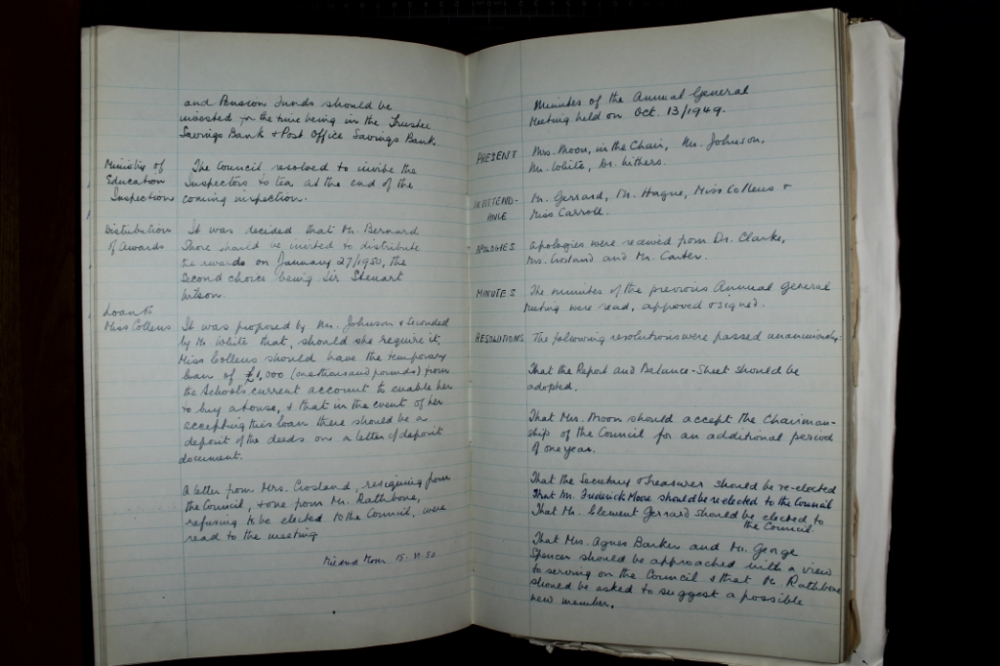 and Pension Funds should be
invested for the time being in the Trustee
Savings Bank + Post Office Savings Bank.
Ministry of
Education
Inspection
The Council resolved to invite the
Inspectors to tea at the end of the
coming inspection.
Distribution
of Awards
It was decided that Mr. Bernard
Shore should be invited to distribute
the awards on January 27/1950, the
second choice being Sir Steuart
Wilson.
Loan to
Miss Collens
It was proposed by Mr. Johnson & seconded
by Mr. White that, should she require it,
Miss Collens should have the temporary
loan of £1,000 (one thousand pounds) from
the School's current account to enable her
to buy a house, & that in the event of her
accepting this loan there should be a
deposit of the deeds on a letter of deposit
document.
A letter from Mrs. Crosland, resigning from
the Council, & one from Mr. Rathbone,
refusing to be elected to the Council, were
read to the meeting
Moon 15. 50
Minutes of the Annual General
Meeting held on Oct. 13/1949.
PRESENT
Mrs. Moon, in the Chair, Mr. Johnson,
Mr. White, Dr. Withers.
IN ATTEND-
ANCE
Mr. Gerrard, Mr. Hague, Miss Collens +
Miss Carroll.
APOLOGIES
Apologies were received from Dr. Clarke,
Mrs. Crosland and Mr. Carter.
MINUTES
The minutes of the previous Annual General
Meeting were read, approved & signed.
RESOLUTIONS
The following resolutions were passed unanimously:
That the Report and Balance-Sheet should be
adopted.
That Mrs. Moon should accept the Chairman-
ship of the Council for an additional period
of one year.
That the Secretary & Treasurer should be re-elected
That Mr. Frederick Moore should be re-elected to the Council
That Mr. Clement Gerrard should be elected to
the Council.
That Mrs. Agnes Barker and Mr. George
Spencer should be approached with a view
to serving on the Council & that Mr. Rathbone
should be asked to suggest a possible
new member.